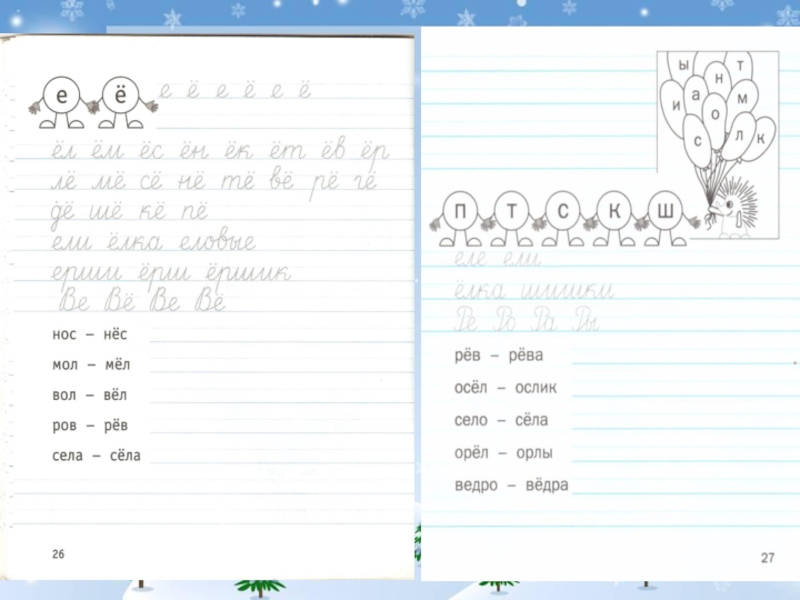 е ё
е ё е ё е ё
ёл ём ёс ён ёк ёт ёв ёр
лё мё сё нё тё вё рё гё
дё шё кё пё
ели ёлка еловые
ерши ёрш ёршик
Ве Вё Ве Вё
нос – нёс
мол – мёл
вол – вёл
ров – рёв
села – сёла
26
ы н т
и а о м
с л к
П Т С К Ш
еле ели
ёлка шишки
Ре Ро Ра Ры
рёв – рёва
осёл – ослик
село – сёла
орёл – орлы
ведро – вёдра
27